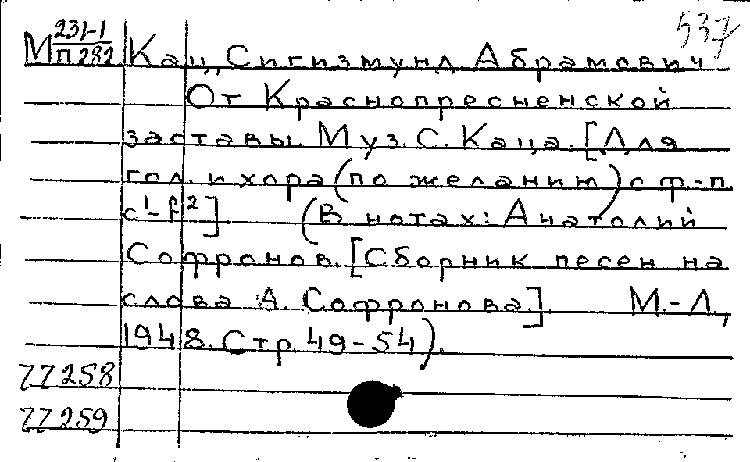 537
М 231-1
П 282
Кац, Сигизмунд Абрамович
От Краснопресненской
заставы. Муз. С. Каца. [Для
гол. и хора (по желанию) с ф-п.
c¹-f²] (В нотах: Анатолий
Софронов. [Сборник песен на
слова А. Софронова]. М.-Л.,
1948. Стр 49-54).
77258
77259